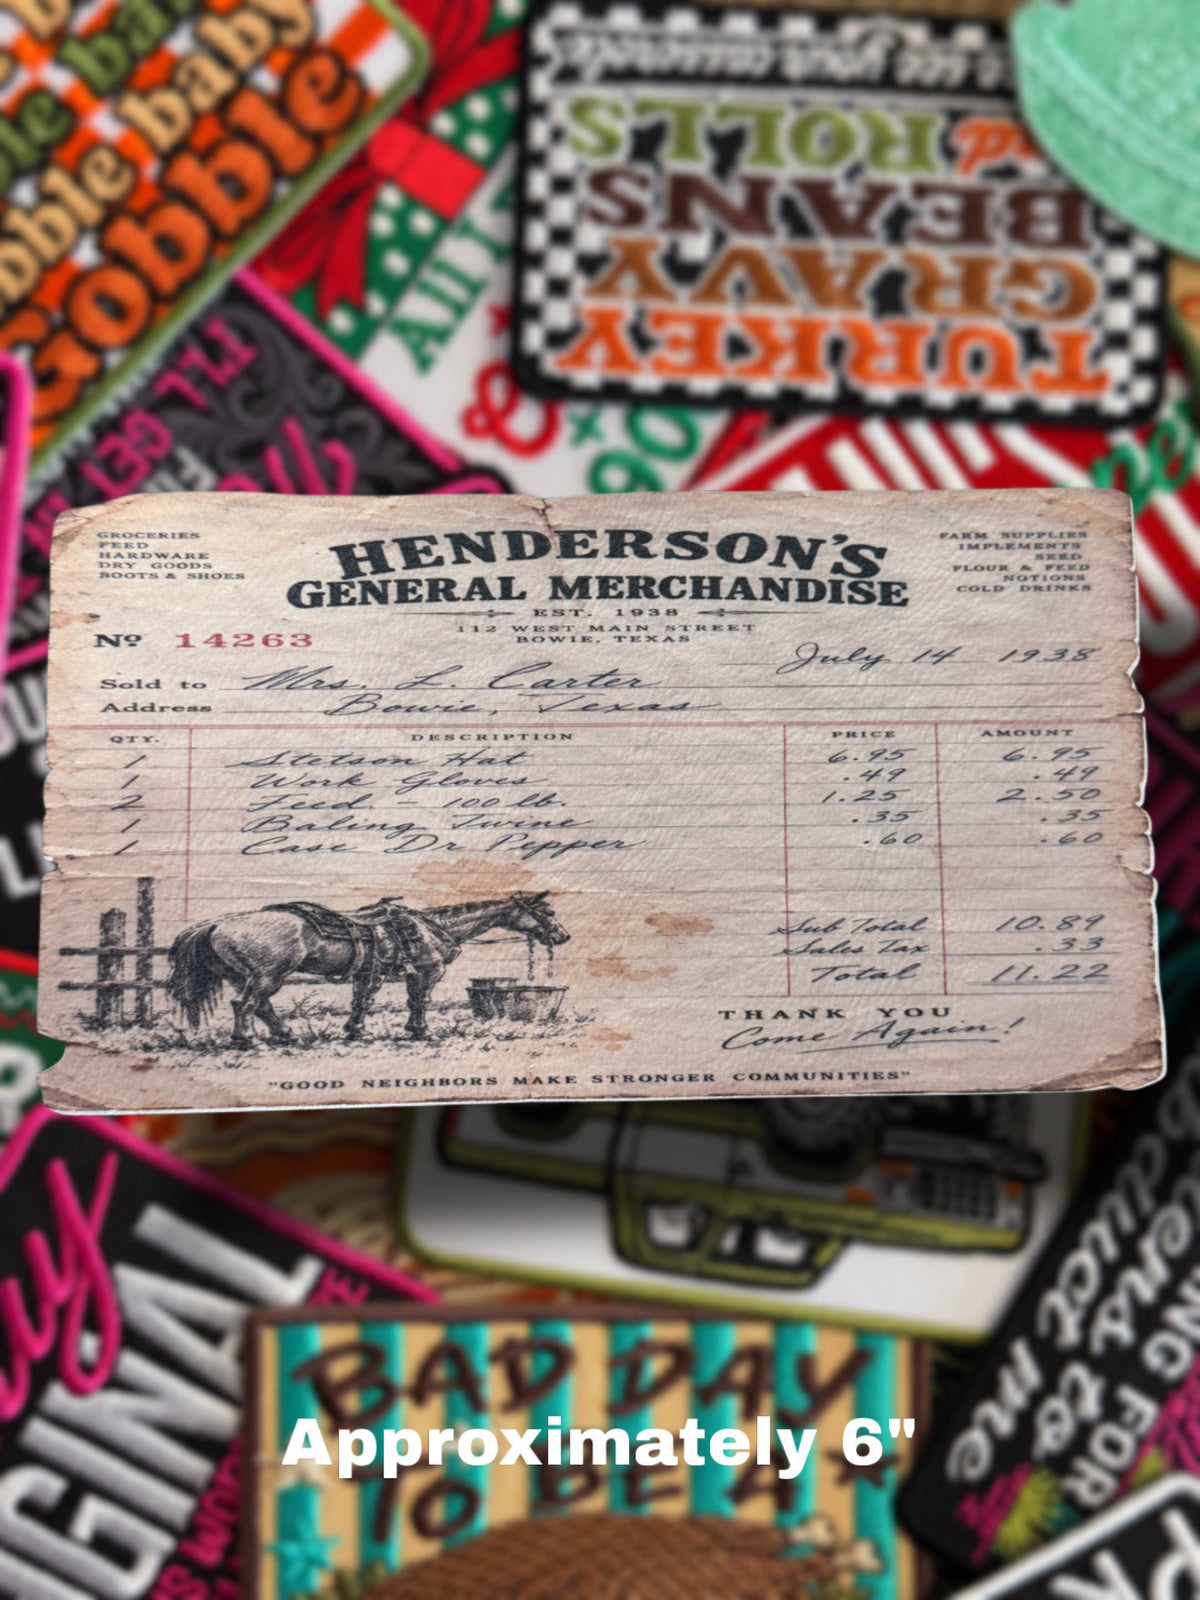 ble baby
Gobble
All I
see your casserole
and ROLLS
BEANS
GRAVY
TURKEY
GROCERIES
FEED
HARDWARE
DRY GOODS
BOOTS & SHOES
HENDERSON'S
GENERAL MERCHANDISE
EST. 1938
112 WEST MAIN STREET
BOWIE, TEXAS
FARM SUPPLIES
IMPLEMENTS
SEED
FLOUR & FEED
NOTIONS
COLD DRINKS
Nº 14263
July 14 1938
Sold to Mrs. L. Carter
Address Bowie, Texas
QTY. DESCRIPTION PRICE AMOUNT
1 Stetson Hat 6.95 6.95
1 Work Gloves .49 .49
2 Feed - 100 lb. 1.25 2.50
1 Baling Twine .35 .35
1 Case Dr Pepper .60 .60
Sub Total 10.89
Sales Tax .33
Total 11.22
THANK YOU
Come Again!
"GOOD NEIGHBORS MAKE STRONGER COMMUNITIES"
BAD DAY
TO BE A
Approximately 6"